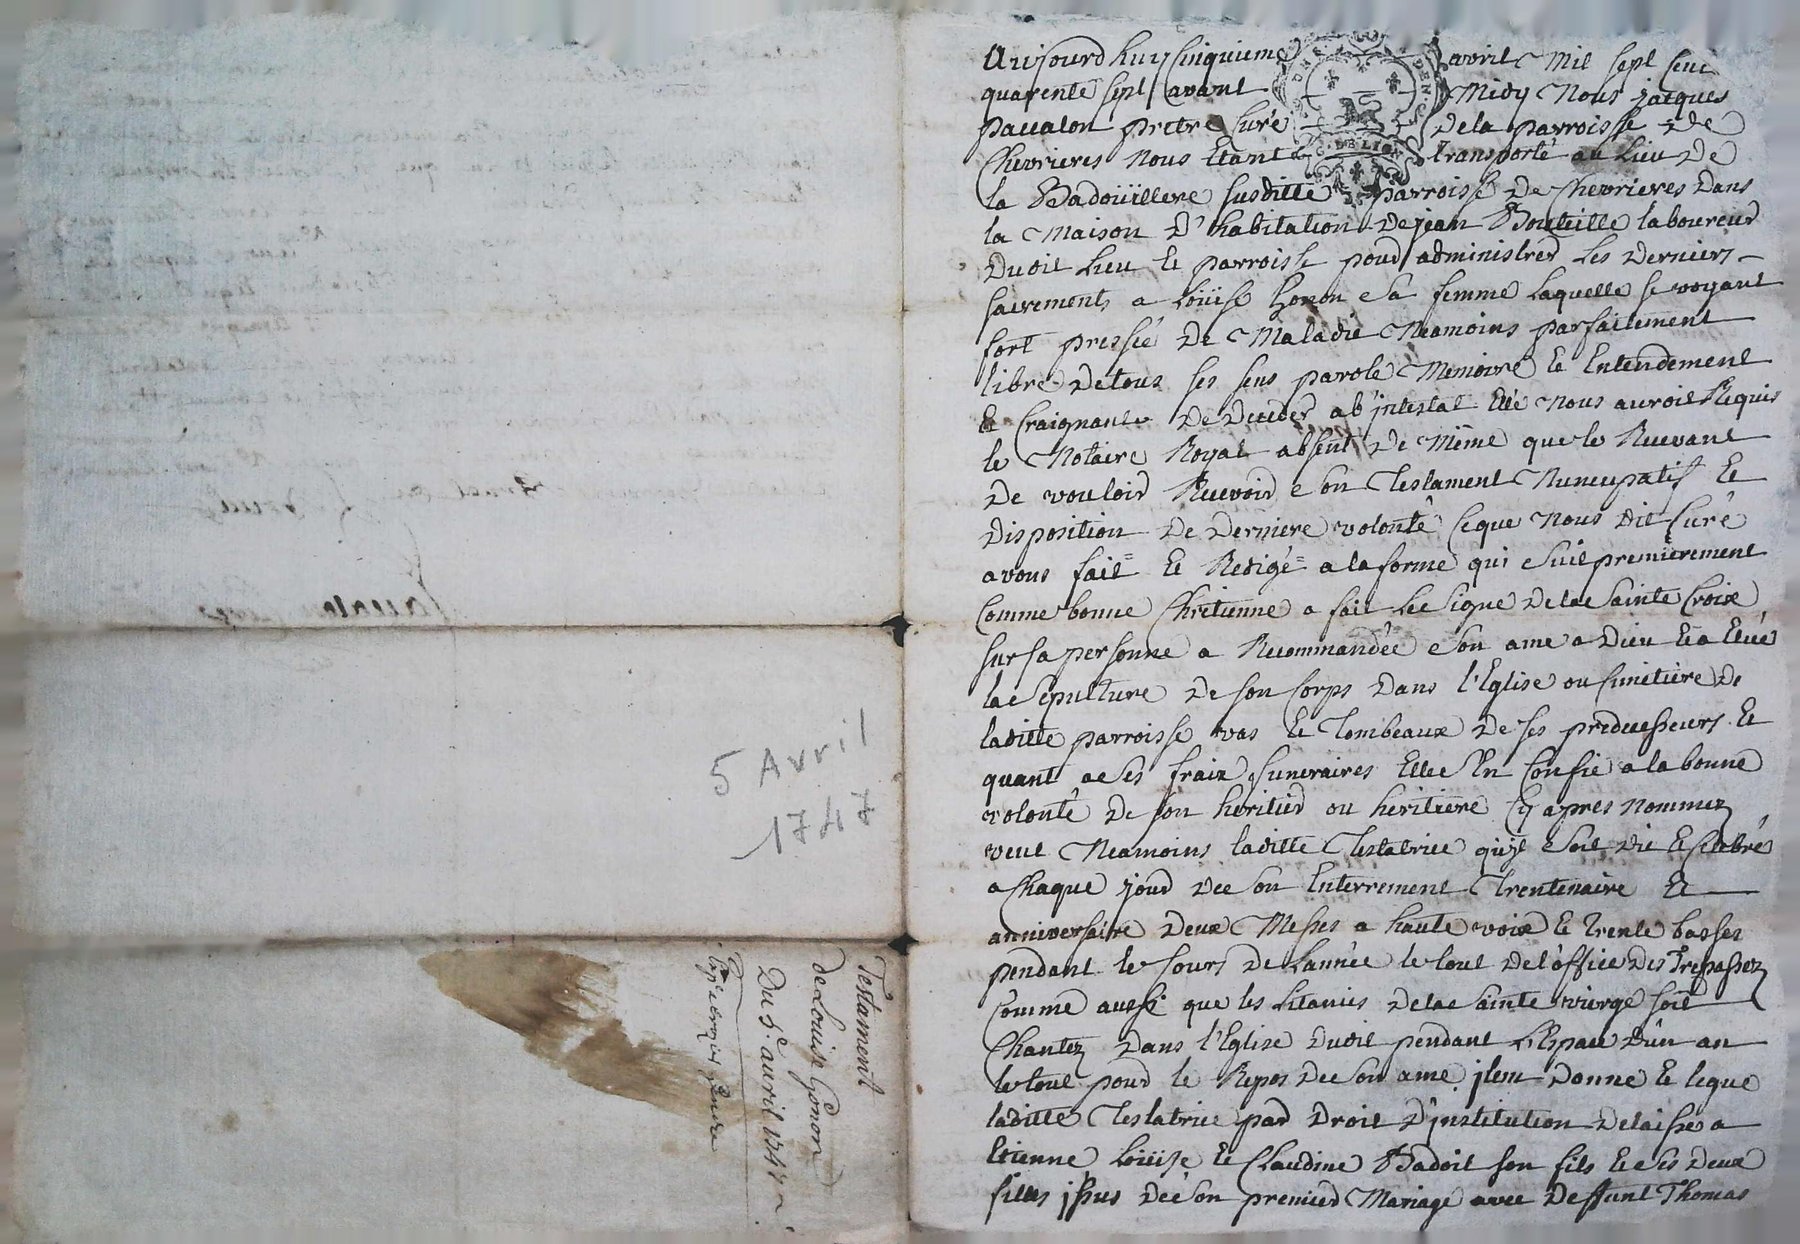 Aujourd huy Cinquieme avril Mil sept Cent
quarente sept avant Midy Nous jacques
pavalon pretre Curé dela parroisse de
Chevrieres Nous Etant transporté au Lieu De
la Badoüillere susditte parroisse De Chevrieres Dans
la Maison D'habitation De jean Bouteille laboureur
Dudit Lieu Et parroisse pour administrer Les Derniers
sacrements a Loüise Gonon Sa femme Laquelle se voyant
fort pressée De Maladie Neamoins parfaitement
libre De tous ses sens parole Memoire Et Entendement
Et Craignante De Deceder ab jntestat Elle Nous auroit Requis
le Notaire Royal absent De Même que le Recevant
De vouloir Recevoir Son Testament Nuncupatif Et
Disposition De Derniere volonté Ceque Nous Dit Curé
avons fait Et Redigé a la forme qui Suit premierement
Comme bonne Chrêtienne a fait Le Signe De la Sainte Croix
sur sa personne a Recommandée Son ame a Dieu Et a Elüe
la Sepulture De son Corps Dans l'Eglise ou Cimetiere De
laditte parroisse vas Et Tombeaux De ses predecesseurs Et
quant a Ses fraix funeraires Elle S'En Confie a la bonne
volonté De son heritier ou heritiere Cy apres Nommez
veut Neamoins laditte Testatrice qu'jl Soit Dit Et Celebré
a Chaque jour De Son Enterrement Trentenaire Et
anniversaire Deux Messes a haute voix Et Trente basses
pendant le Cours De Lannée le tout De l'office Des Trepassez
Comme aussi que les Litanies De la Sainte vierge soit
Chantez Dans l'Eglise Dudit pendant L'Espace D'un an
le tout pour le Repos De Son ame jtem Donne Et legue
laditte Testatrice par Droit D'jnstitution Delaisse a
Etienne Loüise Et Claudine Badoit son fils Et Ses Deux
filles jssus De Son premier Mariage avec Deffunt Thomas
5 Avril
1747
Testament
de Louise Gonon
Du 5e avril 1747